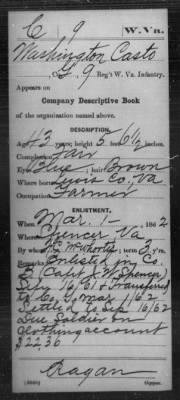 C 9 W. Va.
Washington Casto
Co. G, 9 Reg't W. Va. Infantry.
Appears on
Company Descriptive Book
of the organization named above.
DESCRIPTION.
Age 43 years; height 5 feet 6½ inches.
Complexion Fair
Eyes Blue; hair Brown
Where born Lewis Co., Va
Occupation Farmer
ENLISTMENT.
When Mar. 1-, 1862
Where Spencer Va
By McWhorter; term 3 y'rs.
Remarks: Enlisted in Co.
B (Capt J W Spencer)
Sily 16/61 & Transferred
to Co. G, Mar 1/62
Settled to Sep 16/62
Due Soldier on
clothing account
$22.36
Ragan
Copyist.